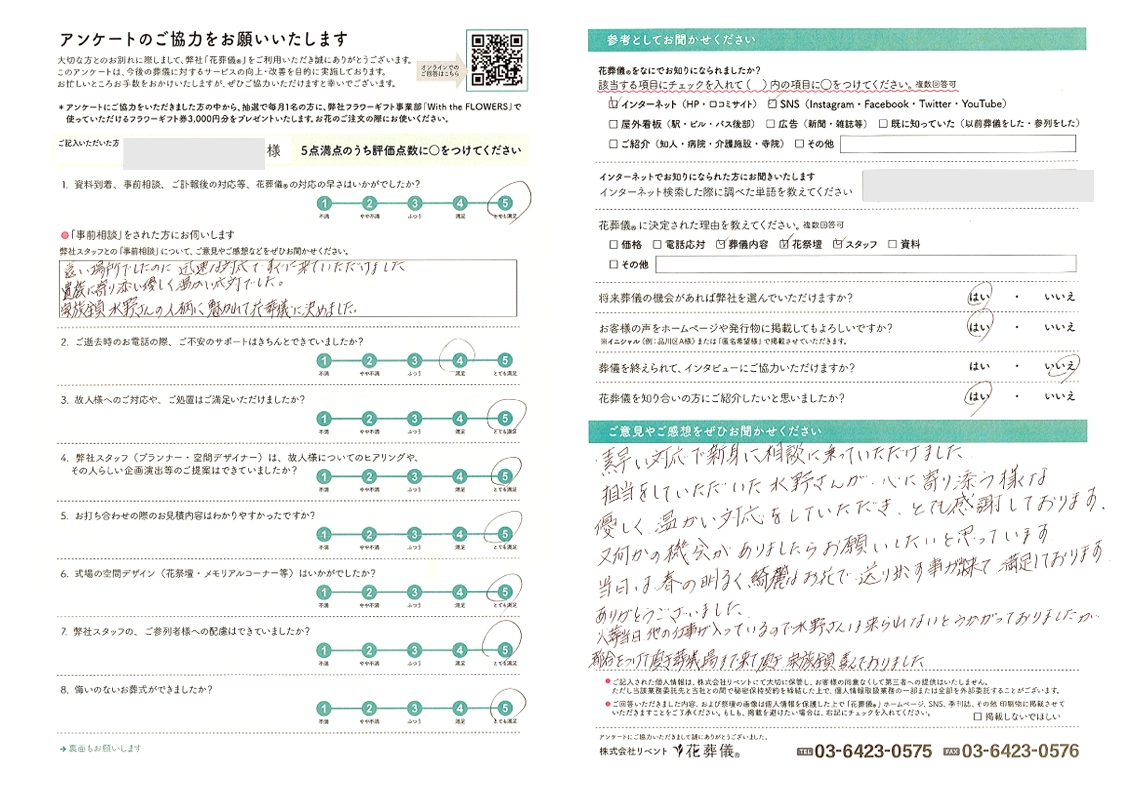 アンケートのご協力をお願いいたします
大切な方とのお別れに際しまして、弊社「花葬儀®」をご利用いただき誠にありがとうございます。
このアンケートは、今後の葬儀に対するサービスの向上・改善を目的に実施しております。
お忙しいところお手数をおかけいたしますが、ぜひご協力いただけますと幸いでございます。
オンラインでの
ご回答はこちら
*アンケートにご協力をいただきました方の中から、抽選で毎月1名の方に、弊社フラワーギフト事業部「With the FLOWERS」で
使っていただけるフラワーギフト券3,000円分をプレゼントいたします。お花のご注文の際にお使いください。
ご記入いただいた方
様
5点満点のうち評価点数に○をつけてください
1. 資料到着、事前相談、ご訃報後の対応等、花葬儀®の対応の早さはいかがでしたか?
1 2 3 4 5
不満 やや不満 ふつう 満足 とても満足
●「事前相談」をされた方にお伺いします
弊社スタッフとの「事前相談」について、ご意見やご感想などをぜひお聞かせください。
遠い場所でしたのに 迅速な対応ですぐに来ていただけました
遺族に寄り添い優しく温かい応対でした。
家族全員 水野さんの人柄に魅かれて花葬儀に決めました。
2. ご逝去時のお電話の際、ご不安のサポートはきちんとできていましたか?
1 2 3 4 5
不満 やや不満 ふつう 満足 とても満足
3. 故人様へのご対応や、ご処置はご満足いただけましたか?
1 2 3 4 5
不満 やや不満 ふつう 満足 とても満足
4. 弊社スタッフ(プランナー・空間デザイナー)は、故人様についてのヒアリングや、
その人らしい企画演出等のご提案はできていましたか?
1 2 3 4 5
不満 やや不満 ふつう 満足 とても満足
5. お打ち合わせの際のお見積内容はわかりやすかったですか?
1 2 3 4 5
不満 やや不満 ふつう 満足 とても満足
6. 式場の空間デザイン(花祭壇・メモリアルコーナー等)はいかがでしたか?
1 2 3 4 5
不満 やや不満 ふつう 満足 とても満足
7. 弊社スタッフの、ご参列者様への配慮はできていましたか?
1 2 3 4 5
不満 やや不満 ふつう 満足 とても満足
8. 悔いのないお葬式ができましたか?
1 2 3 4 5
不満 やや不満 ふつう 満足 とても満足
→裏面もお願いします
参考としてお聞かせください
花葬儀®をなにでお知りになられましたか?
該当する項目にチェックを入れて( )内の項目に○をつけてください。複数回答可
☑インターネット(HP・口コミサイト) ☑SNS(Instagram・Facebook・Twitter・YouTube)
□屋外看板(駅・ビル・バス後部) □広告(新聞・雑誌等) □既に知っていた(以前葬儀をした・参列をした)
□ご紹介(知人・病院・介護施設・寺院) □その他
インターネットでお知りになられた方にお聞きいたします
インターネット検索した際に調べた単語を教えてください
花葬儀®に決定された理由を教えてください。複数回答可
□価格 □電話応対 ☑葬儀内容 ☑花祭壇 ☑スタッフ □資料
□その他
将来葬儀の機会があれば弊社を選んでいただけますか? はい ・ いいえ
お客様の声をホームページや発行物に掲載してもよろしいですか? はい ・ いいえ
※イニシャル(例:品川区A様)または「匿名希望様」で掲載させていただきます。
葬儀を終えられて、インタビューにご協力いただけますか? はい ・ いいえ
花葬儀を知り合いの方にご紹介したいと思いましたか? はい ・ いいえ
ご意見やご感想をぜひお聞かせください
素早い対応で親身に相談に乗っていただけました
担当をしていただいた水野さんが、心に寄り添う様な
優しく温かい対応をしていただき、とても感謝しております。
又何かの機会がありましたらお願いしたいと思っています
当日は春の明るく綺麗なお花で送り出す事が出来て満足しております
ありがとうございました。
火葬当日 他の仕事が入っているので水野さんは来られないとうかがっておりましたが
都合をつけて頂き葬儀場まで来て頂き 家族全員喜んでおりました
●ご記入された個人情報は、株式会社リベントにて大切に保管し、お客様の同意なくして第三者への提供はいたしません。
ただし当該業務委託先と当社との間で秘密保持契約を締結した上で、個人情報取扱業務の一部または全部を外部委託することがございます。
●ご回答いただきました内容、および祭壇の画像は個人情報を保護した上で「花葬儀®」ホームページ、SNS、季刊誌、その他、印刷物に掲載させて
いただきますことをご了承ください。もしも、掲載を避けたい場合は、右記にチェックを入れてください。 □掲載しないでほしい
アンケートにご協力いただきまして誠にありがとうございました。
株式会社リベント 花葬儀® TEL 03-6423-0575 FAX 03-6423-0576